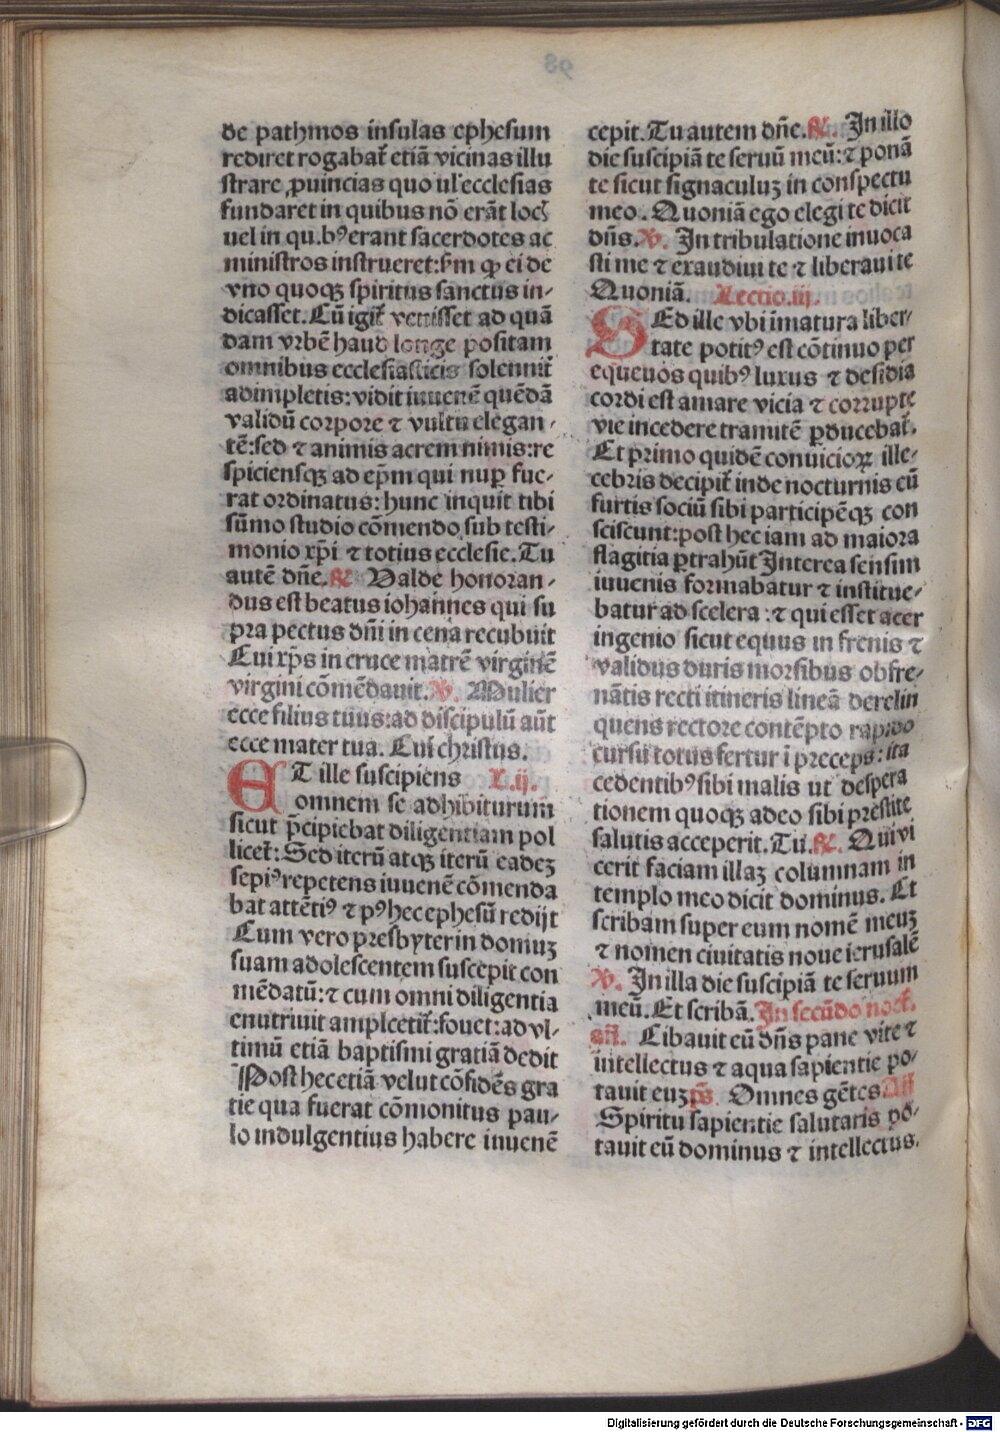 de pathmos insulas ephesum
rediret rogabat᷑ etiā vicinas illu
strare ꝓuincias quo ul' ecclesias
fundaret in quibus nō erāt locꝭ
uel in qu.bꝰ erant sacerdotes ac
ministros instrueret: ẜm ꝙ ei de
vno quoqꝫ spiritus sanctus in-
dicasset. Cū igit᷑ venisset ad quā
dam vrbē haud longe positam
omnibus ecclesiasticis solennit᷑
adimpletis: vidit iuuenē quēdā
validū corpore ⁊ vultu elegan-
tē: sed ⁊ animis acrem nimis: re
spiciensqꝫ ad ep̄m qui nuꝑ fue-
rat ordinatus: hunc inquit tibi
sūmo studio cōmendo sub testi-
monio xp̄i ⁊ totius ecclesie. Tu
autē dn̄e. ℟ Valde honoran-
dus est beatus iohannes qui su
pra pectus dn̄i in cena recubuit
Cui xp̄s in cruce matrē virginē
virgini cōmēdauit. ℣. Mulier
ecce filius tuus: ad discipulū aūt
ecce mater tua. Cui christus.
ET ille suscipiens L. ij.
omnem se adhibiturum
sicut p̄cipiebat diligentiam pol
licet᷑: Sed iterū atqꝫ iterū eadeꝫ
sepiꝰ repetens iuuenē cōmenda
bat attētiꝰ ⁊ pꝰ hec ephesū redijt
Cum vero presbyter in domuꝫ
suam adolescentem suscepit con
mēdatū: ⁊ cum omni diligentia
enutriuit amplectit᷑: fouet: ad vl-
timū etiā baptismi gratiā dedit
Post hec etiā velut cōfidēs gra
tie qua fuerat cōmonitus pau-
lo indulgentius habere iuuenē
cepit. Tu autem dn̄e. ℟. In illo
die suscipiā te seruū meū: ⁊ ponā
te sicut signaculuꝫ in conspectu
meo. Quoniā ego elegi te dicit
dn̄s. ℣. In tribulatione inuoca
sti me ⁊ exaudiui te ⁊ liberaui te
Quoniā. Lectio. iij.
SEd ille vbi īmatura liber-
tate potitꝰ est cōtinuo per
equeuos quibꝰ luxus ⁊ desidia
cordi est amare vicia ⁊ corrupte
vie incedere tramitē ꝑducebat᷑.
Et primo quidē conuicioꝝ ille-
cebris decipit᷑ inde nocturnis eū
furtis sociū sibi participēqꝫ con
sciscunt: post hec iam ad maiora
flagitia ꝑtrahūt Interea sensim
iuuenis formabatur ⁊ institue-
batur ad scelera: ⁊ qui esset acer
ingenio sicut equus in frenis ⁊
validus duris morsibus obfre-
nātis recti itineris lineā derelin
quens rectore contēpto rapido
cursu totus fertur ī preceps: ita
cedentibꝰ sibi malis ut despera
tionem quoqꝫ adeo sibi prestite
salutis acceperit. Tu. ℟. Qui vi
cerit faciam illaꝫ columnam in
templo meo dicit dominus. Et
scribam super eum nomē meuꝫ
⁊ nomen ciuitatis noue ierusalē
℣. In illa die suscipiā te seruum
meū. Et scribā. In secūdo noct᷑.
añ. Cibauit eū dn̄s pane vite ⁊
intellectus ⁊ aqua sapientie po-
tauit euꝫ p̄s. Omnes gētes Añ
Spiritu sapientie salutaris po-
tauit eū dominus ⁊ intellectus.
Digitalisierung gefördert durch die Deutsche Forschungsgemeinschaft - DFG